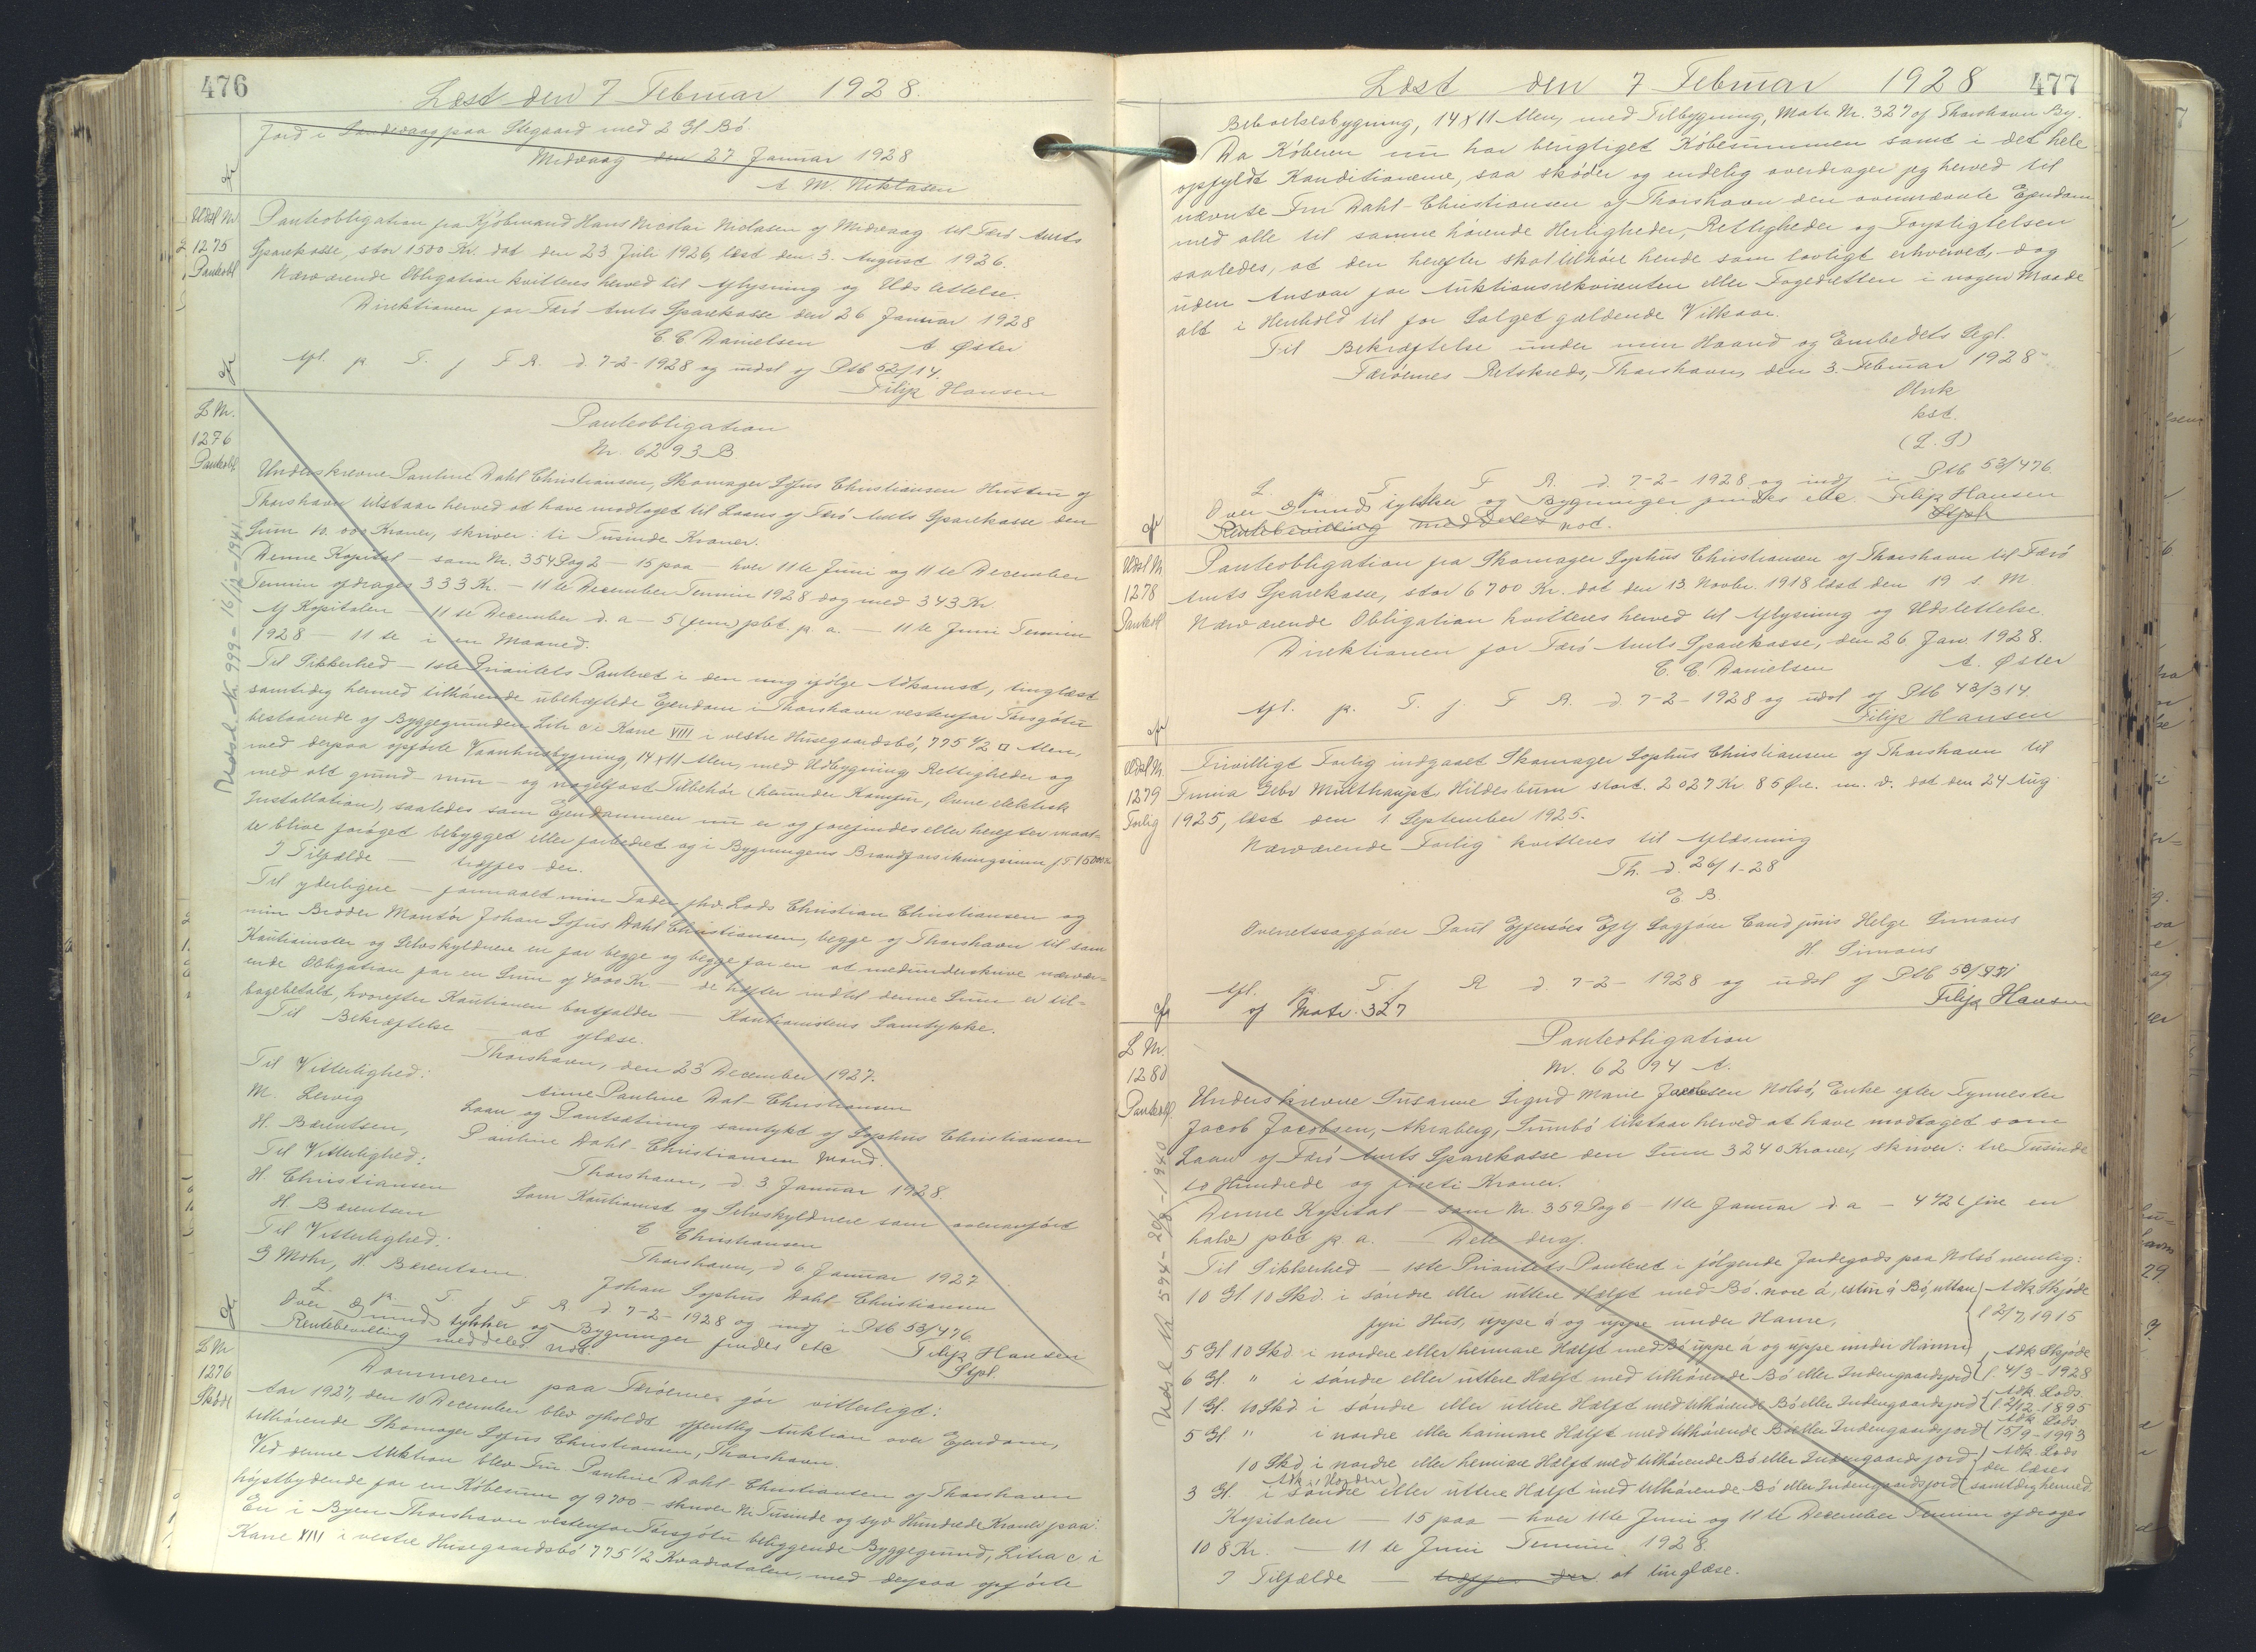 476
Læst den 7 Februar 1928.
Jord i Sandevaag paa Stegaard med 2 Gl. Bø
Midvaag den 27 Januar 1928
A. M. Niklasen
Udsl Nr.
1275
Pantobl
Panteobligation fra Kjøbmand Hans Nicolai Niclasen af Midvaag til Færø Amts
Sparekasse, stor 1500 Kr. dat den 23 Juli 1926, læst den 3. August 1926.
Nærværende Obligation kvitteres herved til Aflysning og Udslettelse.
Direktionen for Færø Amts Sparekasse den 26 Januar 1928
C. C. Danielsen A Øster
Afl. p. T. f F R. d. 7-2-1928 og udsl af Ptb 52/14.
Filip Hansen
L Nr.
1276
Pantobl
Panteobligation
Nr. 6293 B
Underskrevne Pauline Dahl Christiansen, Skomager Sofus Christiansen Hustru af
Thorshavn tilstaar herved at have modtaget til Laans af Færø Amts Sparekasse den
Sum 10.000 Kroner, skriver: ti Tusinde Kroner.
Denne Kapital - som Nr. 354 Pag 2 - 15 paa - hver 11te Juni og 11te December
Termin afdrages 333 Kr. - 11te December Termin 1928 dog med 343 Kr.
Af Kapitalen - 11te December d. a - 5 (fem) pCt. p. a. - 11te Juni Termin
1928 - 11te i en Maaned.
Til Sikkerhed - 1ste Prioritets Panteret i den mig ifølge Adkomst, tinglæst
samtidig hermed tilhørende ubehæftede Ejendom i Thorshavn vestenfor Torsgøtu
bestaaende af Byggegrunden Litr c i Kane VIII i vestre Husegaardsbø, 775 1/2 □ Alen,
med derpaa opførte Vaanhusbygning, 14x11 Alen, med Udbygning Rettigheder og
med alt grund- mur- og nagelfast Tilbehør (herunder Komfur, Ovne elektrisk
Installation), saaledes som Ejendommen nu er og forefindes eller herefter maat-
te blive forøget bebygget eller forbedret og i Bygningens Brandforsikringssum
I Tilfælde - træffes der.
Til yderligere - formaaet min Fader fhv. Lods Christian Christiansen og
min Broder Montør Johan Sofus Dahl Christiansen, begge af Thorshavn til som
Kautionister og Selvskyldnere en for begge og begge for en at medunderskrive nærvær-
ende Obligation for en Sum af 4000 Kr - de hæfter indtil denne Sum er til-
bagebetalt, hvorefter Kautionen bortfalder - Kautionistens Samtykke.
Til Bekræftelse - at aflæse.
Thorshavn, den 23 December 1927.
Til Vitterlighed:
M. Lervig
Anne Pauline Dal-Christiansen
H. Bærentsen,
Laan og Pantsætning samtykt af Sophus Christiansen
Pauline Dahl-Christiansen Mand.
Til Vitterlighed:
H. Christiansen
Thorshavn, d. 3 Januar 1928.
H. Bærentsen
Som Kautionist og Selvskyldnere som ovenanført
C Christiansen
Til Vitterlighed:
Thorshavn, d 6 Januar 1927
J Mohr, H. Bærentsen
Johan Sophus Dahl Christiansen
L. p. T. f F R. d. 7-2-1928 og indf i Ptb 53/476.
Over Grundstykker og Bygninger findes etc Filip Hansen
Rentebevilling meddeles not. Stpl.
Udsl. Nr. 999 - 16/12-1941
L Nr
1276
Skøde
Dommeren paa Færøerne gør vitterligt:
Aar 1927, den 10 December blev afholdt offentlig Auktion over Ejendom,
tilhørende Skomager Sofus Christiansen, Thorshavn.
Ved denne Auktion blev Fru Pauline Dahl-Christiansen af Thorshavn
højstbydende for en Købesum af 9700 - skriver Ni Tusinde og syv Hundrede Kroner paa:
En i Byen Thorshavn vestenfor Torsgøtu beliggende Byggegrund, Litra c i
Kane XIII i vestre Husegaardsbø 775 1/2 Kvadratalen, med derpaa opførte
Læst den 7 Februar 1928 477
Beboelsesbygning, 14x11 Alen, med Tilbygning, Matr. Nr. 327 af Thorshavn By.
Da Køberen nu har berigtiget Købesummen samt i det hele
opfyldt Konditionerne, saa skøder og endelig overdrager jeg herved til
nævnte Fru Dahl-Christiansen af Thorshavn den ovennævnte Ejendom
med alle til samme hørende Herligheder, Rettigheder og Forpligtelsen
saaledes, at den herefter skal tilhøre hende som lovligt erhvervet, dog
uden Ansvar for Auktionsrekvirenten eller Fogedretten i nogen Maade
alt i Henhold til for Salget gældende Vilkaar.
Til Bekræftelse under min Haand og Embedets Segl.
Færøernes Retskreds, Thorshavn, den 3. Februar 1928
kst.
(L. S)
L. p. T. f F R. d. 7-2-1928 og indf i Ptb 53/476.
Over Grundstykker og Bygninger findes etc. Filip Hansen
Rentebevilling meddeles not. Stpl.
Udsl Nr.
1278
Pantobl
Panteobligation fra Skomager Sophus Christiansen af Thorshavn til Færø
Amts Sparekasse, stor 6700 Kr. dat den 13 Novbr. 1918 læst den 19 s. M.
Nærværende Obligation kvitteres herved til Aflysning og Udslettelse.
Direktionen for Færø Amts Sparekasse, den 26 Jan 1928.
C. C. Danielsen A. Øster
Afl. p. T. f. F R. d 7-2-1928 og udsl af Ptb 43/314.
Filip Hansen
Udsl Nr.
1279
Forlig
Frivilligt Forlig indgaaet Skomager Sophus Christiansen af Thorshavn til
Firma Gebr Multhaupt Hildesheim stort. 2027 Kr 85 Øre. m. v. dat den 24 Aug
1925, læst den 1 September 1925.
Nærværende Forlig kvitteres til Aflæsning
Th. d. 26/1-28
E. B.
Overretssagfører Poul Eff Sagfører Cand juris Helge Simons
H. Simons
Afl. p. T. f R d. 7-2-1928 og udsl af Ptb
af Matr. 327 Filip Hansen
L Nr.
1280
Pantobl
Panteobligation
Nr. 6294 A.
Underskrevne Susanne Sigrid Marie Jacobsen Nolsø, Enke efter Fyrmester
Jacob Jacobsen, Akraberg, Sumbø tilstaar herved at have modtaget som
Laan af Færø Amts Sparekasse den Sum 3240 Kroner, skriver: tre Tusinde
to Hundrede og fireti Kroner.
Denne Kapital - som Nr. 359 Pag 6 - 11te Januar d. a - 4 1/2 (fire en
halv) pCt p. a. - Dele deraf.
Til Sikkerhed - 1ste Prioritets Panteret i følgende Jordegods paa Nolsø nemlig:
10 Gl. 10 Skd. i søndre eller uttere Halft med Bø. nore á, estur á Bø, uttan Adk Skjøde
fyri Hus, uppe á og uppe under Hamre, l 2/7 1915
5 Gl 10 Skd i nordre eller heimare Halft med Bø uppe á og uppe under Hamri, Adk Skjøde
6 Gl. " i søndre eller uttere Halft med tilhørende Bø eller Indengaardsjord l. 4/3-1928
1 Gl 10 Skd i søndre eller uttere Halft med tilhørende Bø eller Indengaardsjord Adk Lods. l 2/12 1895
5 Gl " i nordre eller haimare Halft med tilhørende Bø eller Indengaardsjord Adk Lods 15/9-1993
10 Skd i nordre eller heimare Halft med tilhørende Bø eller Indengaardsjord Adk. Lods
3 Gl. i søndre eller uttere Halft med tilhørende Bø eller Indengaardsjord der læses samtidig hermed
Kapitalen - 15 paa - hver 11te Juni og 11te December Termin afdrages
108 Kr. - 11te Juni Termin 1928.
I Tilfælde - træffes der at tinglæse.
Udsl. No 594 - 29/8-1940